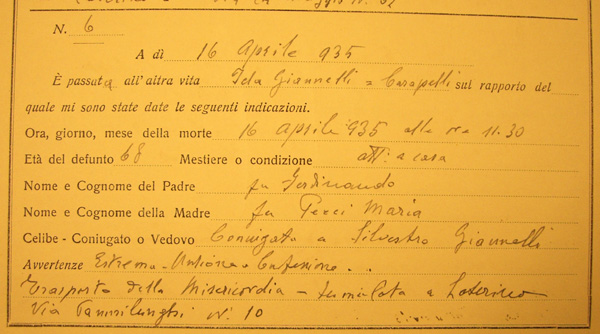 N. 6
A dì 16 Aprile 935
È passata all'altra vita Ida Giannelli = Carapelli sul rapporto del
quale mi sono state date le seguenti indicazioni.
Ora, giorno, mese della morte 16 Aprile 935 alle ore 11.30
Età del defunto 68 Mestiere o condizione att: a casa
Nome e Cognome del Padre fu Ferdinando
Nome e Cognome della Madre fu Pecci Maria
Celibe - Coniugato o Vedovo Coniugata a Silvestro Giannelli
Avvertenze Estrema-Unzione e Confessione . .
Trasporto della Misericordia - tumulata a Laterino
Via N. 10